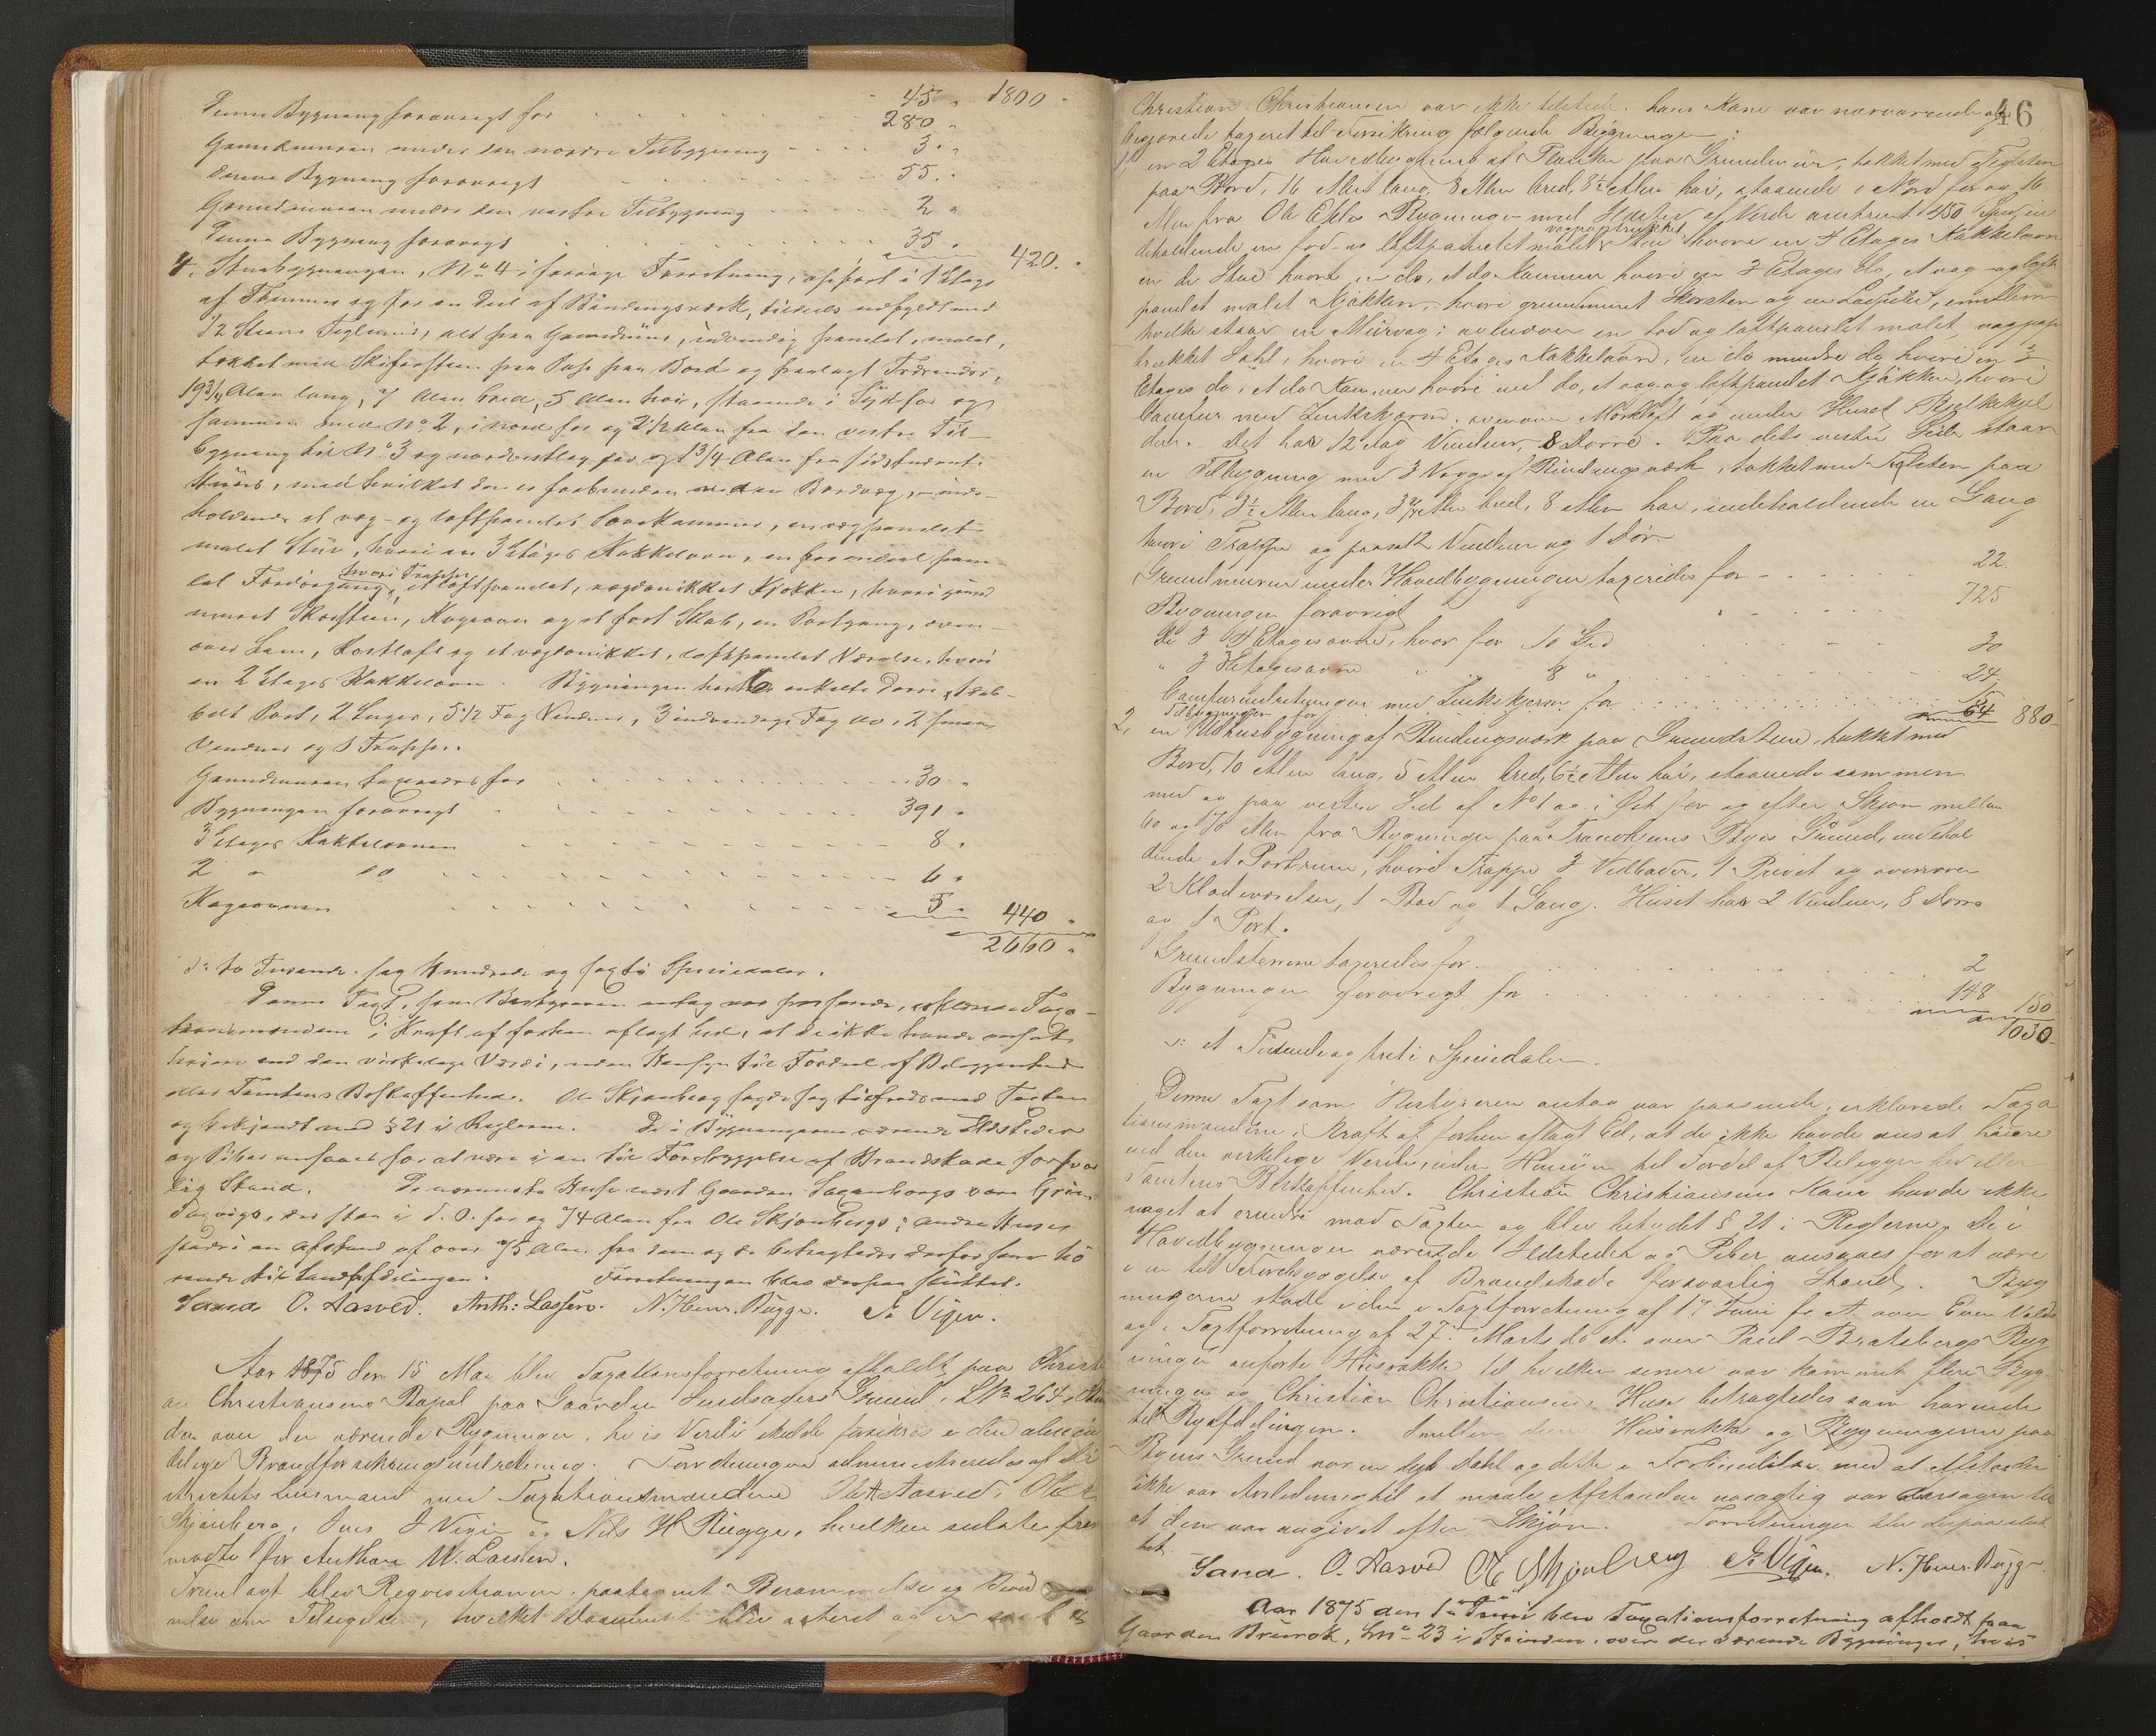 45 " 1800 "
Denne Bygning forøvrigt for 280 "
Grundmuren under den nordre Tilbygning 3 "
denne Bygning forøvrigt 55 "
Grundmuren under den vestre Tilbygning 2 "
Denne Bygning forøvrigt 35 " 420 "
4. Stuebygningen, No 4 i forrige Forretning, opført i 1 Etage
af Tømmer og for en Deel af Bindingsværk, tildeels udfyldt med
1/2 Steens Teglmuur, alt paa Grundmuur, indvendig panelet, malet,
tækket med Skifersteen paa Papp paa Bord og
19 3/4 Alen lang, 7 Alen bred, 5 Alen høi, staaende i Syd for og
sammen med No 2, i nord for og 2 1/2 Alen fra den vestre Til-
bygning til No 3 og nordvestlig for og 1 3/4 Alen fra sidstnævnte
Huus, med hvilket den er forbunden ved en Bordvæg, inde-
holdende et væg- og loftpanelet Sovekammer, en vægpanelet
malet Stue, hvori en 3 Etages Kakkelovn, en for endeel pane-
let Fordørgang, hvori Trappe, et loftpanelet, vægbeklikket Kjøkken, hvori grund
muret Skorsteen, Kogeovn og et fast Skab, en Portgang, oven-
over Lem, Kostloft og et loftpanelet Værelse, hvori
en 2 Etages Kakkelovn. Bygningen har enkelte Dørre, 1 dob-
belt Port, 2 Luger, 5 1/2 Fag Vinduer, 3 indvendige Fag do, 2 smaa
Vinduer og 1 Trappe.
Grundmuren taxeredes for 30 "
Bygningen forøvrigt 391 "
3 Etages Kakkelovnen 8 "
2 " do 6 "
Kogeovnen 5 " 440 "
2660 "
d: to Tusende sex Hundrede og sexti Speciedaler.
Denne Taxt, som Bestyreren antog var passende, erklærede Taxa-
tionsmændene i Kraft af forhen aflagt Eed, at de ikke havde ansat
høiere end den virkelige Værdi, uden Hensyn til Fordeel af Beliggenhed
eller Tomtens Beskaffenhed. Ole Skjønberg sagde sig tilfreds med Taxten
og bekjendt med § 21 i Reglerne. De i Bygningerne værende Ildsteder
og Piber ansaaes for at være i en til Forebyggelse af Brandskade forsvar
lig Stand. De nærmeste Huse næst Gaarden Saxenborgs vare Grøn
dagvigs, der staa i S. O. for og 74 Alen fra Ole Skjønbergs; andre Huse
staar i en Afstand af over 75 Alen fra dem og de betragtedes derfor som hø
rende til Landafdelingen. Forretningen blev derpaa sluttet.
Sand O. Aasved. Anth: Lassen. N. Henr. Bügge. J. Vigen.
Aar 1875 den 15 Mai blev Taxationsforretning afholdt paa Christi
an Christiansens Bopæl paa Gaarden Grund, L No 264 i
den over der værende Bygninger, hvis Værdi skulde forsikres i den almin
delige Brandforsikringsindretning. Forretningen administreredes af Di
strictets Lensmand med Taxationsmændene Ole Aasved, Ole
Skjønberg, Jens J Vigen og Nils H Bügge, hvilken sidste frem
mødte for Anthon W. Lassen.
Fremlagt blev Reqvisitionen paategnet Berammelse og Bevid
nelse om Tilsigelse, hvilket Document blev acteret og er
46
Christian Christiansen var ikke tilstede. hans Kone var nærværende og
begjærede taxeret til Forsikring følgende Bygninger:
1, en 2 Etages Hovedbygning af Planker paa Grundmur, tækket med Teglsten
paa Bord, 16 Alen lang, 8 Alen bred, 8 1/2 Alen høi, staaende i Nord for og 16
Alen fra Ole Bygninger med Huse af Værdi omtrent 450 Spd in
deholdende en fod- og loftpanelet malet vægpaptrukket Stue hvori en 4 Etages Kakkelovn
en do Stue hvori en do, et do Kammer hvori en 3 Etages do, et væg- og loft
panelet malet Kjøkken, hvori grundmuret Skorsten og en, imellem
hvilke staar en Murvæg; ovenover en fod og loftpanelet malet, vægpap
trukket Sahl, hvori en 4 Etages Kakkelovn, en do mindre do hvori en 3
Etages do, et do Kammer hvori med do, et væg og loftpanelet Kjøkken, hvori
Comfur med, ovenover Mørkloft og under Huset Kjel
der. Det har 12 Fag Vinduer, 8 Dørre. Paa dets vestre Side staar
en Tilbygning med 3 Vægge af Bindingsværk, tækket med Teglsten paa
Bord, 3 1/2 Alen lang, 3 Alen bred, 8 Alen høi, indeholdende en Gang
hvori Trappe og forsat 2 Vinduer og 1 Dør.
Grundmuren under Hovedbygningen taxeredes for 22.
Bygningen forøvrigt 725
de 3 4 Etagesovne, hver for 10 Spd 30
" 3 3 Etagesovne " " 8 " 24
Comfurindretningen med for 15
Tilbygningen for 64 880
2, en Udhusbygning af Bindingsværk paa Grundstene, tækket med
Bord, 10 Alen lang, 5 Alen bred, 6 1/2 Alen høi, staaende sammen
med og paa vestre Sid af No 1 og i Øst for og efter Skjøn mellem
60 og 70 Alen fra Bygninger paa Byes Grund, indehol
dende et Portrum, hvori Trappe 3 Vedboder, 1 Privet og ovenover
2 Klædeværelser, 1 Bod og 1 Gang. Huset har 2 Vinduer, 8 Dørre
og 1 Port.
Grundstenene taxeredes for 2
Bygningen forøvrigt for 148 150
1030
d: et Tusende og treti Speciedaler.
Denne Taxt som Bestyreren antog var passende, erklærede Taxa
tionsmændene i Kraft af forhen aflagt Ed, at de ikke havde ansat høiere
end den virkelige Værdi, uden Hensyn til Fordel af Beliggenhed eller
Tomtens Beskaffenhed. Christian Christiansens Kone havde ikke
noget at erindre mod Taxten og blev betydet § 21 i Reglerne. De i
Hovedbygningen værende Ildsteder og Piber ansaaes for at være
i en til Forebyggelse af Brandskade forsvarlig Stand. Byg
ningerne stode i den i Taxtforretning af 17 Juni f. A. over Even
og i Taxtforretning af 27. Marts d. A. over Paul Bratsbergs Byg
ninger anførte Husrække til hvilken senere var kommet flere Byg
ninger og Christian Christiansens Huse betragtedes som hørende
til Byafdelingen. Imellem denne Husrække og Bygningerne paa
Byens Grund var en dyb Dahl og dette i Forbindelse med at Afstanden
ikke var Anledning til at maale Afstanden nøiagtig var Aarsagen til
at den var angivet efter Skjøn. Forretningen blev derpaa slut
tet.
Sand. O. Aasved O E Skjönberg J. Vigen. N. Henr. Bügge
Aar 1875 den 1ste Juni blev Taxationsforretning afholdt paa
Gaarden Brurok, LNo 23 i Strinden, over der værende Bygninger, hvis